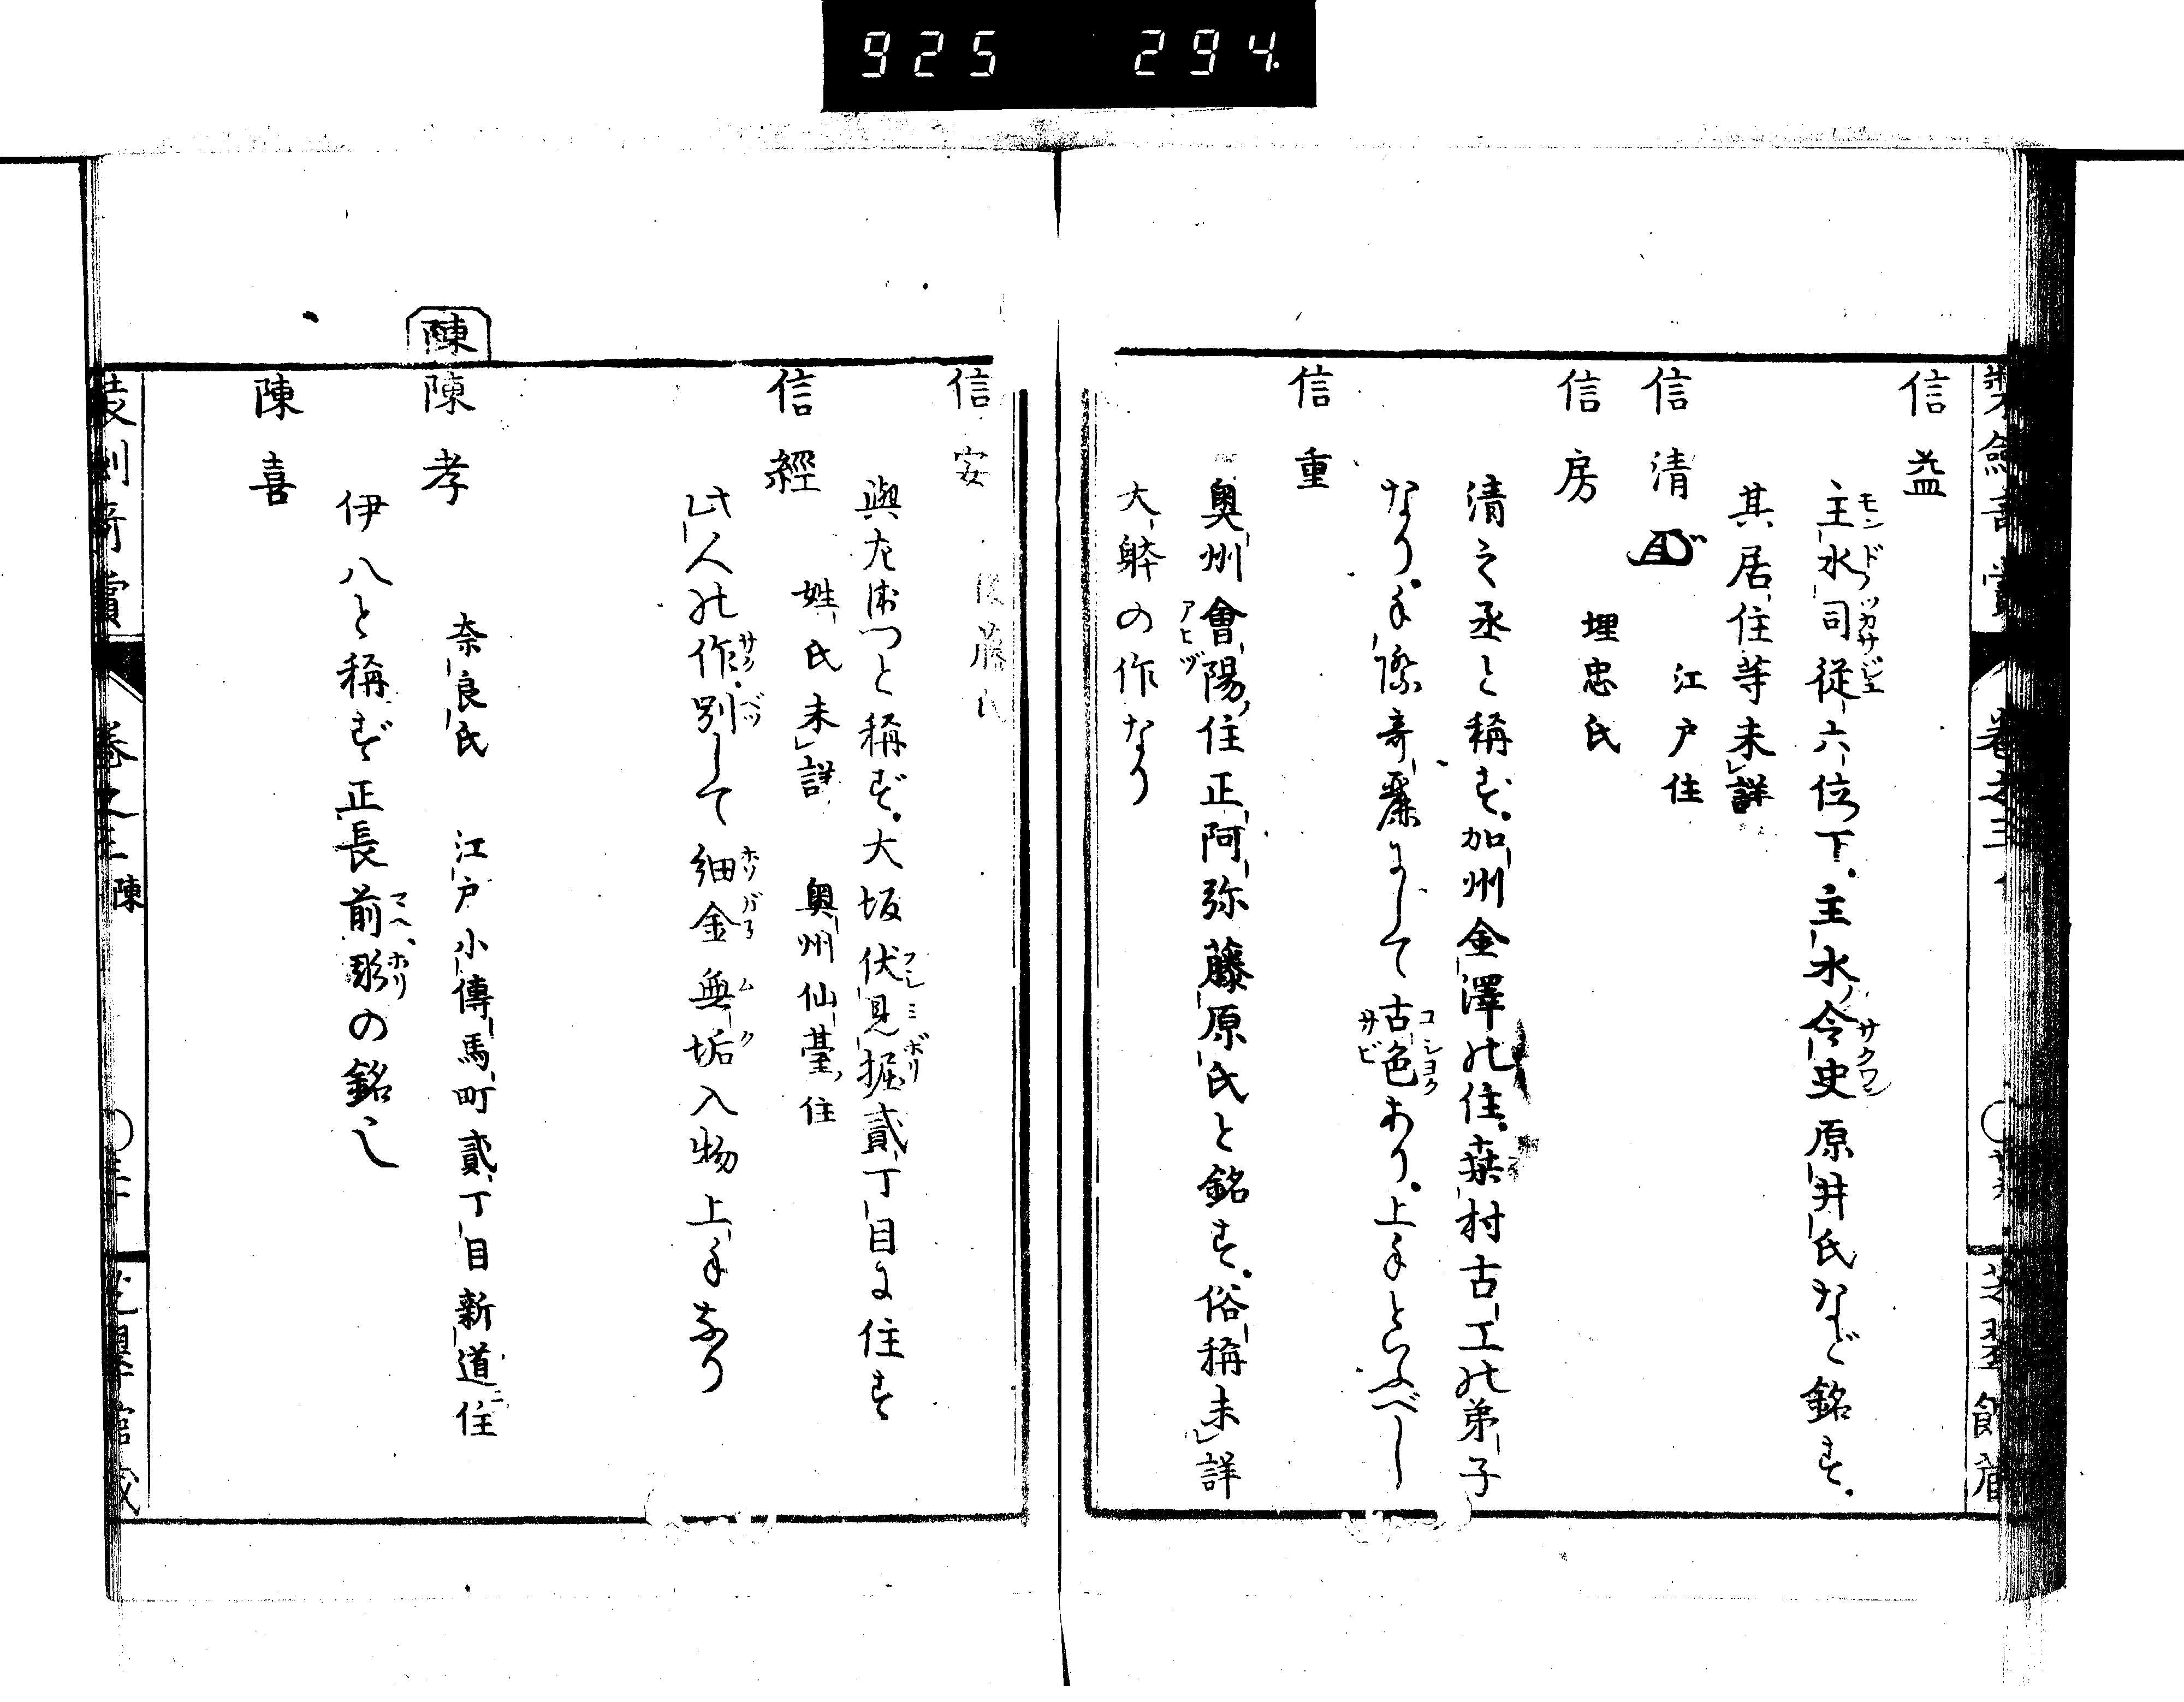 925 294.
信益
主水司從六位下。主水令史原井氏など銘す。
其居住等未詳
信清 江戸住
信房 埋忠氏
清之丞と稱す。加州金澤の住。桒村古工の弟子
なり。手際奇麗にして古色あり。上手といふべし
信重
奥州會陽住正阿弥藤原氏と銘す。俗稱未詳
大躰の作なり
信安 後藤氏
與左衛つと稱す。大坂伏見掘貳丁目に住す
信經 姓氏未詳 奥州仙臺住
此人の作別して細金無垢入物上手なり
陳
陳孝 奈良氏 江戸小傳馬町貳丁目新道ニ住
伊八と稱す正長前彫の銘し
陳喜
装劍奇賞 巻之三 陳